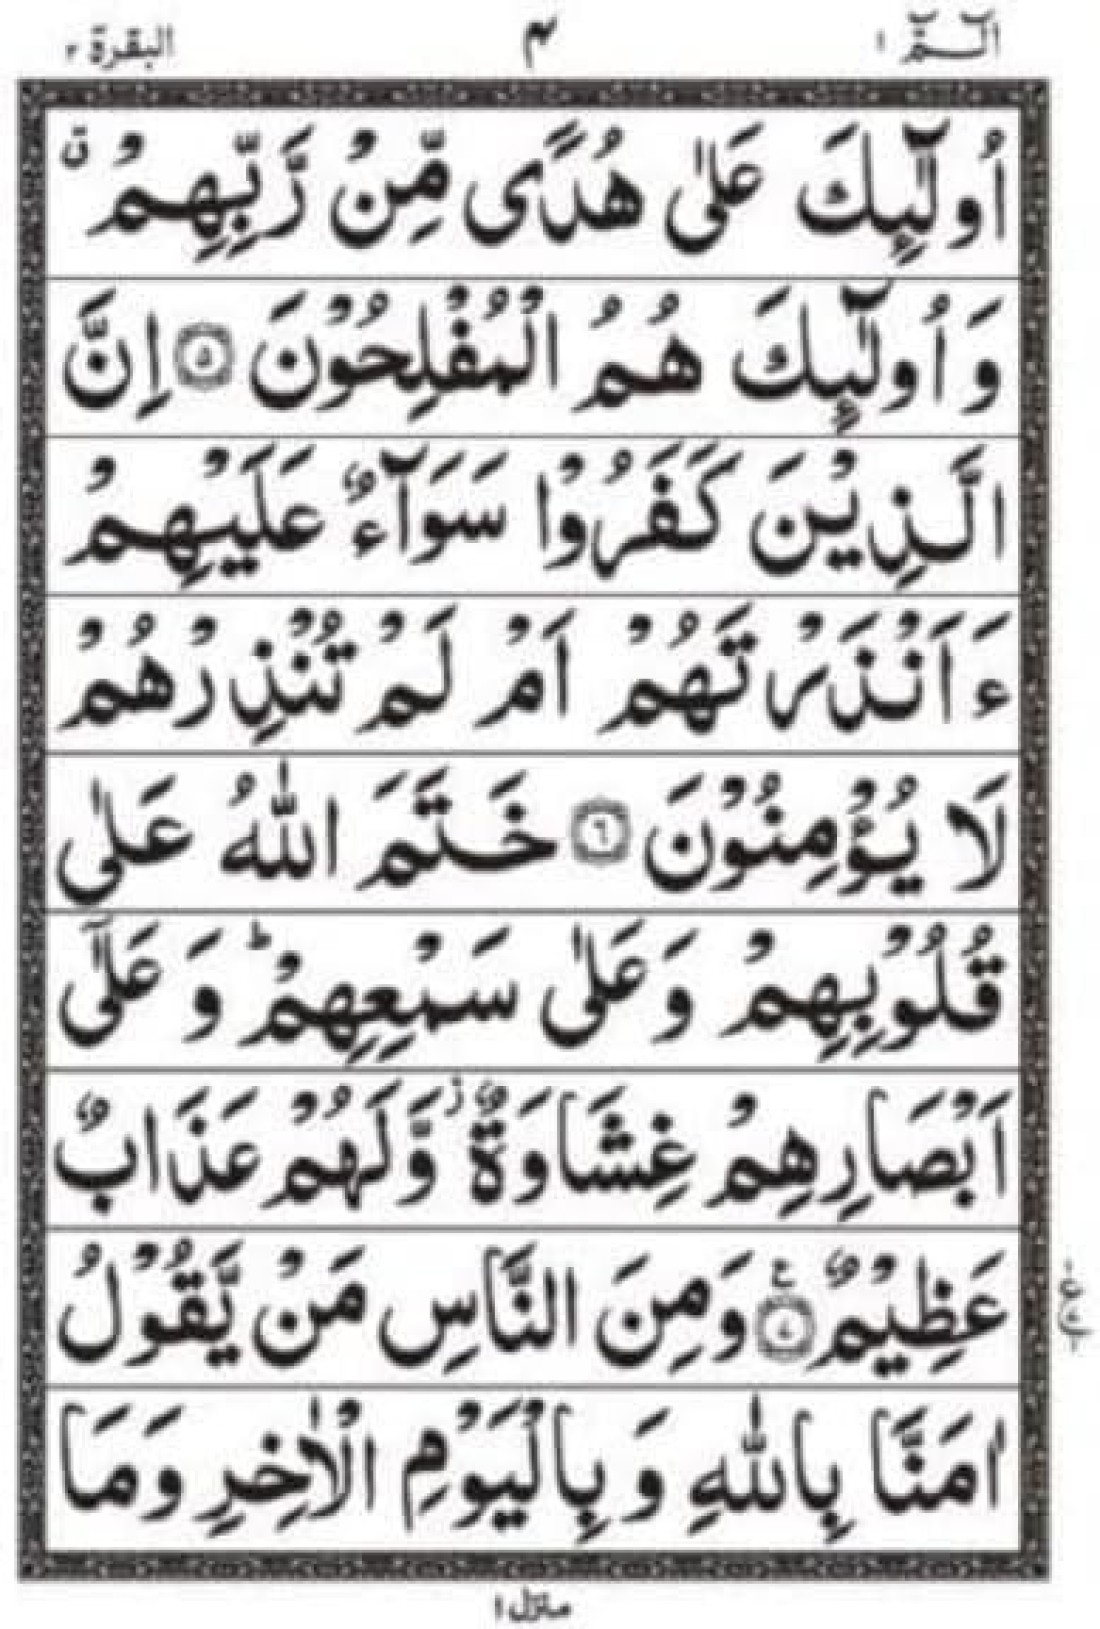 الٓـمّٓ ١
٤
البقرة ٢
اُولٰٓئِكَ عَلٰى هُدًى مِّنْ رَّبِّهِمْ ۙ
وَ اُولٰٓئِكَ هُمُ الْمُفْلِحُوْنَ ۝٥ اِنَّ
الَّذِيْنَ كَفَرُوْا سَوَآءٌ عَلَيْهِمْ
ءَاَنْذَرْتَهُمْ اَمْ لَمْ تُنْذِرْهُمْ
لَا يُؤْمِنُوْنَ ۝٦ خَتَمَ اللّٰهُ عَلٰى
قُلُوْبِهِمْ وَعَلٰى سَمْعِهِمْ ؕ وَ عَلٰٓى
اَبْصَارِهِمْ غِشَاوَةٌ ؗ وَّلَهُمْ عَذَابٌ
عَظِيْمٌ ۝٧ ع وَمِنَ النَّاسِ مَنْ يَّقُوْلُ
اٰمَنَّا بِاللّٰهِ وَ بِالْيَوْمِ الْاٰخِرِ وَمَا
منزل ١